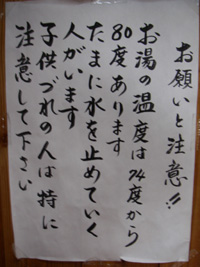 お願いと注意!!
お湯の温度は74度から
80度あります
たまに水を止めていく
人がいます
子供づれの人は特に
注意して下さい